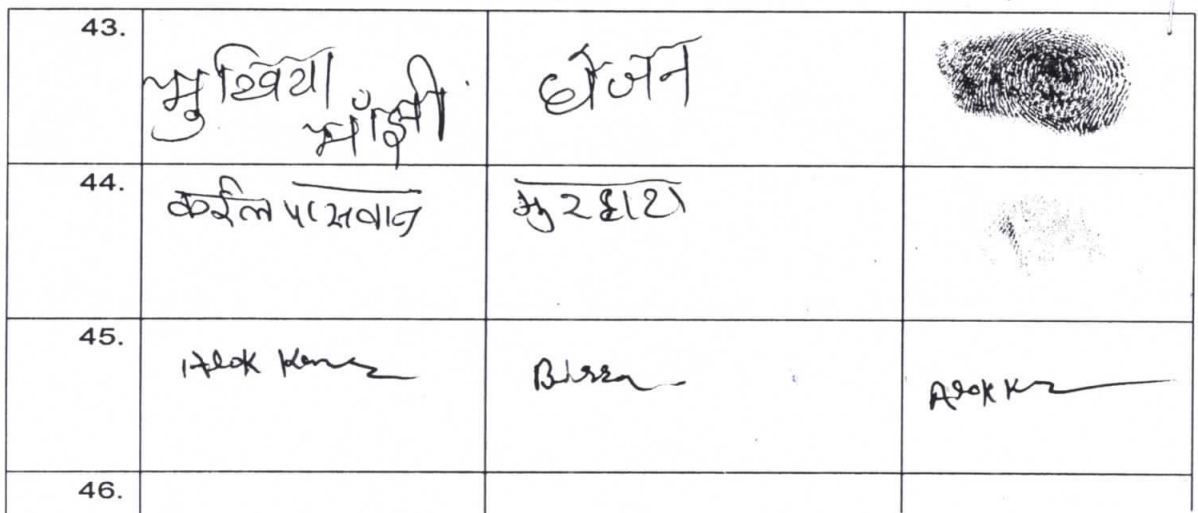 43. मुखिया माँझी धोजन
44. कईल पासवान मुरहाटी
45. Alok Kumar Birra Alok K
46.